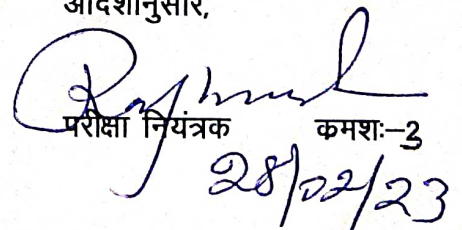 आदेशानुसार,
परीक्षा नियंत्रक कमशः-3
28/02/23